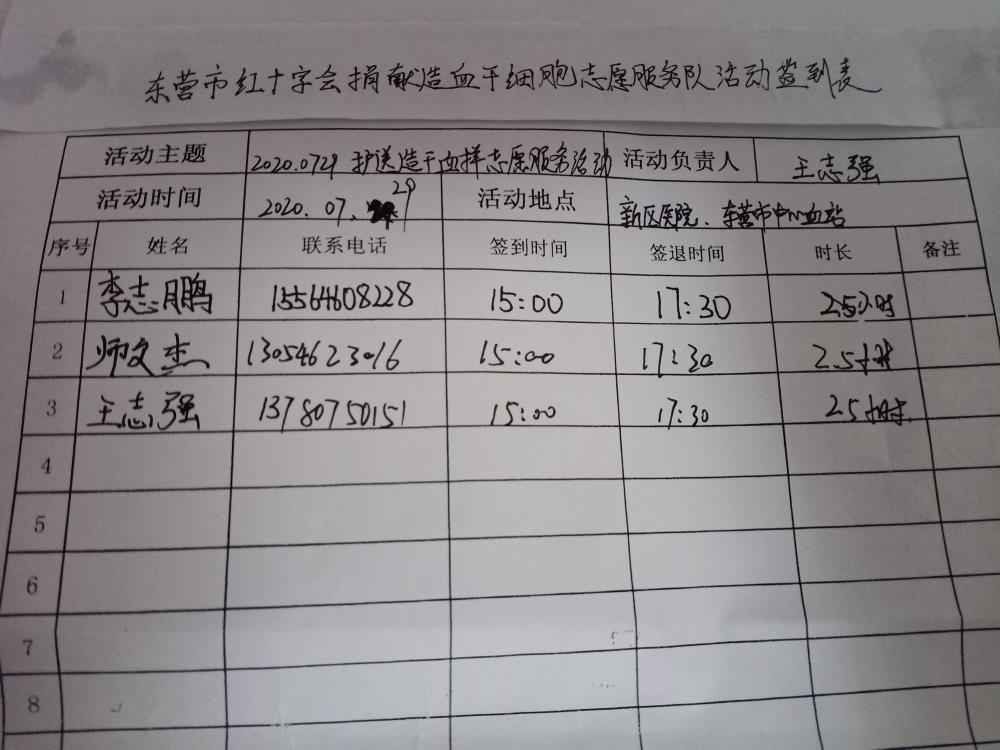 东营市红十字会捐献造血干细胞志愿服务队活动签到表
活动主题 2020.0729 护送造干血样志愿服务活动 活动负责人 王志强
活动时间 2020.07.29 活动地点 新区医院、东营市中心血站
序号 姓名 联系电话 签到时间 签退时间 时长 备注
1 李志鹏 15564608228 15:00 17:30 2.5小时
2 师文杰 13054623016 15:00 17:30 2.5小时
3 王志强 13780750151 15:00 17:30 2.5小时
4
5
6
7
8